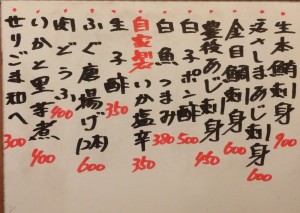 生本鮪刺身 900
活さしまあじ刺身 600
金目鯛刺身 600
豊後あじ刺身 450
白子ポン酢 500
白魚つまみ 380
自家製いか塩辛 350
生子酢 350
ふぐ唐揚げ(2本) 600
肉どうふ 400
いかと里芋煮 400
せりごま和へ 300